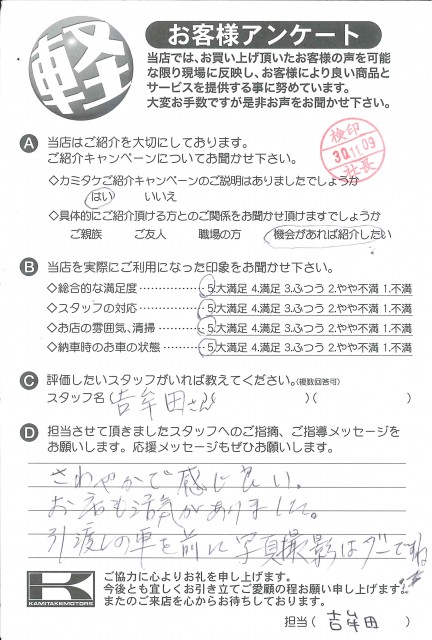 軽
お客様アンケート
当店では、お買い上げ頂いたお客様の声を可能
な限り現場に反映し、お客様により良い商品と
サービスを提供する事に努めています。
大変お手数ですが是非お声をお聞かせ下さい。
検印
30.11.09
社長
A 当店はご紹介を大切にしております。
ご紹介キャンペーンについてお聞かせ下さい。
◇カミタケご紹介キャンペーンのご説明はありましたでしょうか
はい いいえ
◇具体的にご紹介頂ける方とのご関係をお聞かせ頂けますでしょうか
ご親族 ご友人 職場の方 機会があれば紹介したい
B 当店を実際にご利用になった印象をお聞かせ下さい。
◇総合的な満足度……………5.大満足 4.満足 3.ふつう 2.やや不満 1.不満
◇スタッフの対応……………5.大満足 4.満足 3.ふつう 2.やや不満 1.不満
◇お店の雰囲気、清掃………5.大満足 4.満足 3.ふつう 2.やや不満 1.不満
◇納車時のお車の状態………5.大満足 4.満足 3.ふつう 2.やや不満 1.不満
C 評価したいスタッフがいれば教えてください。(複数回答可)
スタッフ名(吉牟田さん )( )
D 担当させて頂きましたスタッフへのご指摘、ご指導メッセージを
お願いします。応援メッセージもぜひお願いします。
さわやかで感じ良い。
お店も活気がありました。
引渡しの車を前に写真撮影はグーですね
K
KAMITAKEMOTORS
ご協力に心よりお礼を申し上げます。
今後とも宜しくお引き立てご愛顧の程お願い申し上げます。
またのご来店を心からお待ちしております。
担当( 吉牟田 )